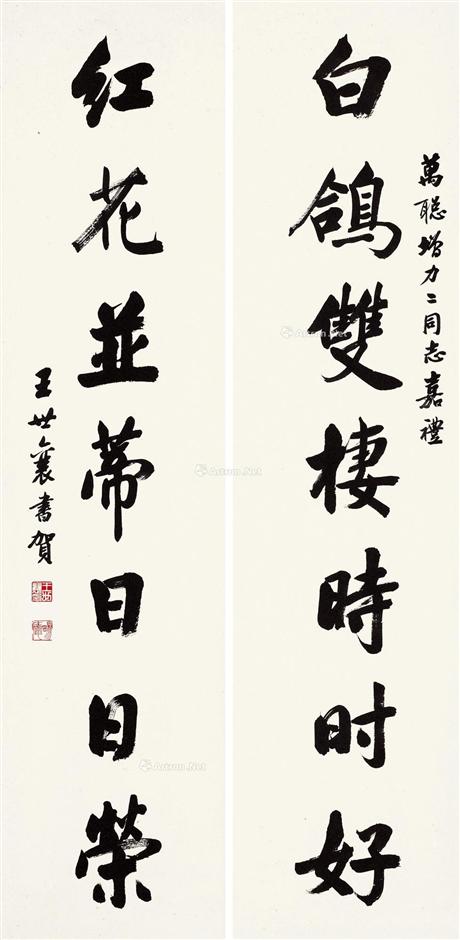 萬聪增力二同志嘉禮
白鴿雙棲時时好
红花並蒂日日榮
王世襄書賀
Artron.Net
Artron.Net
Artron.Net